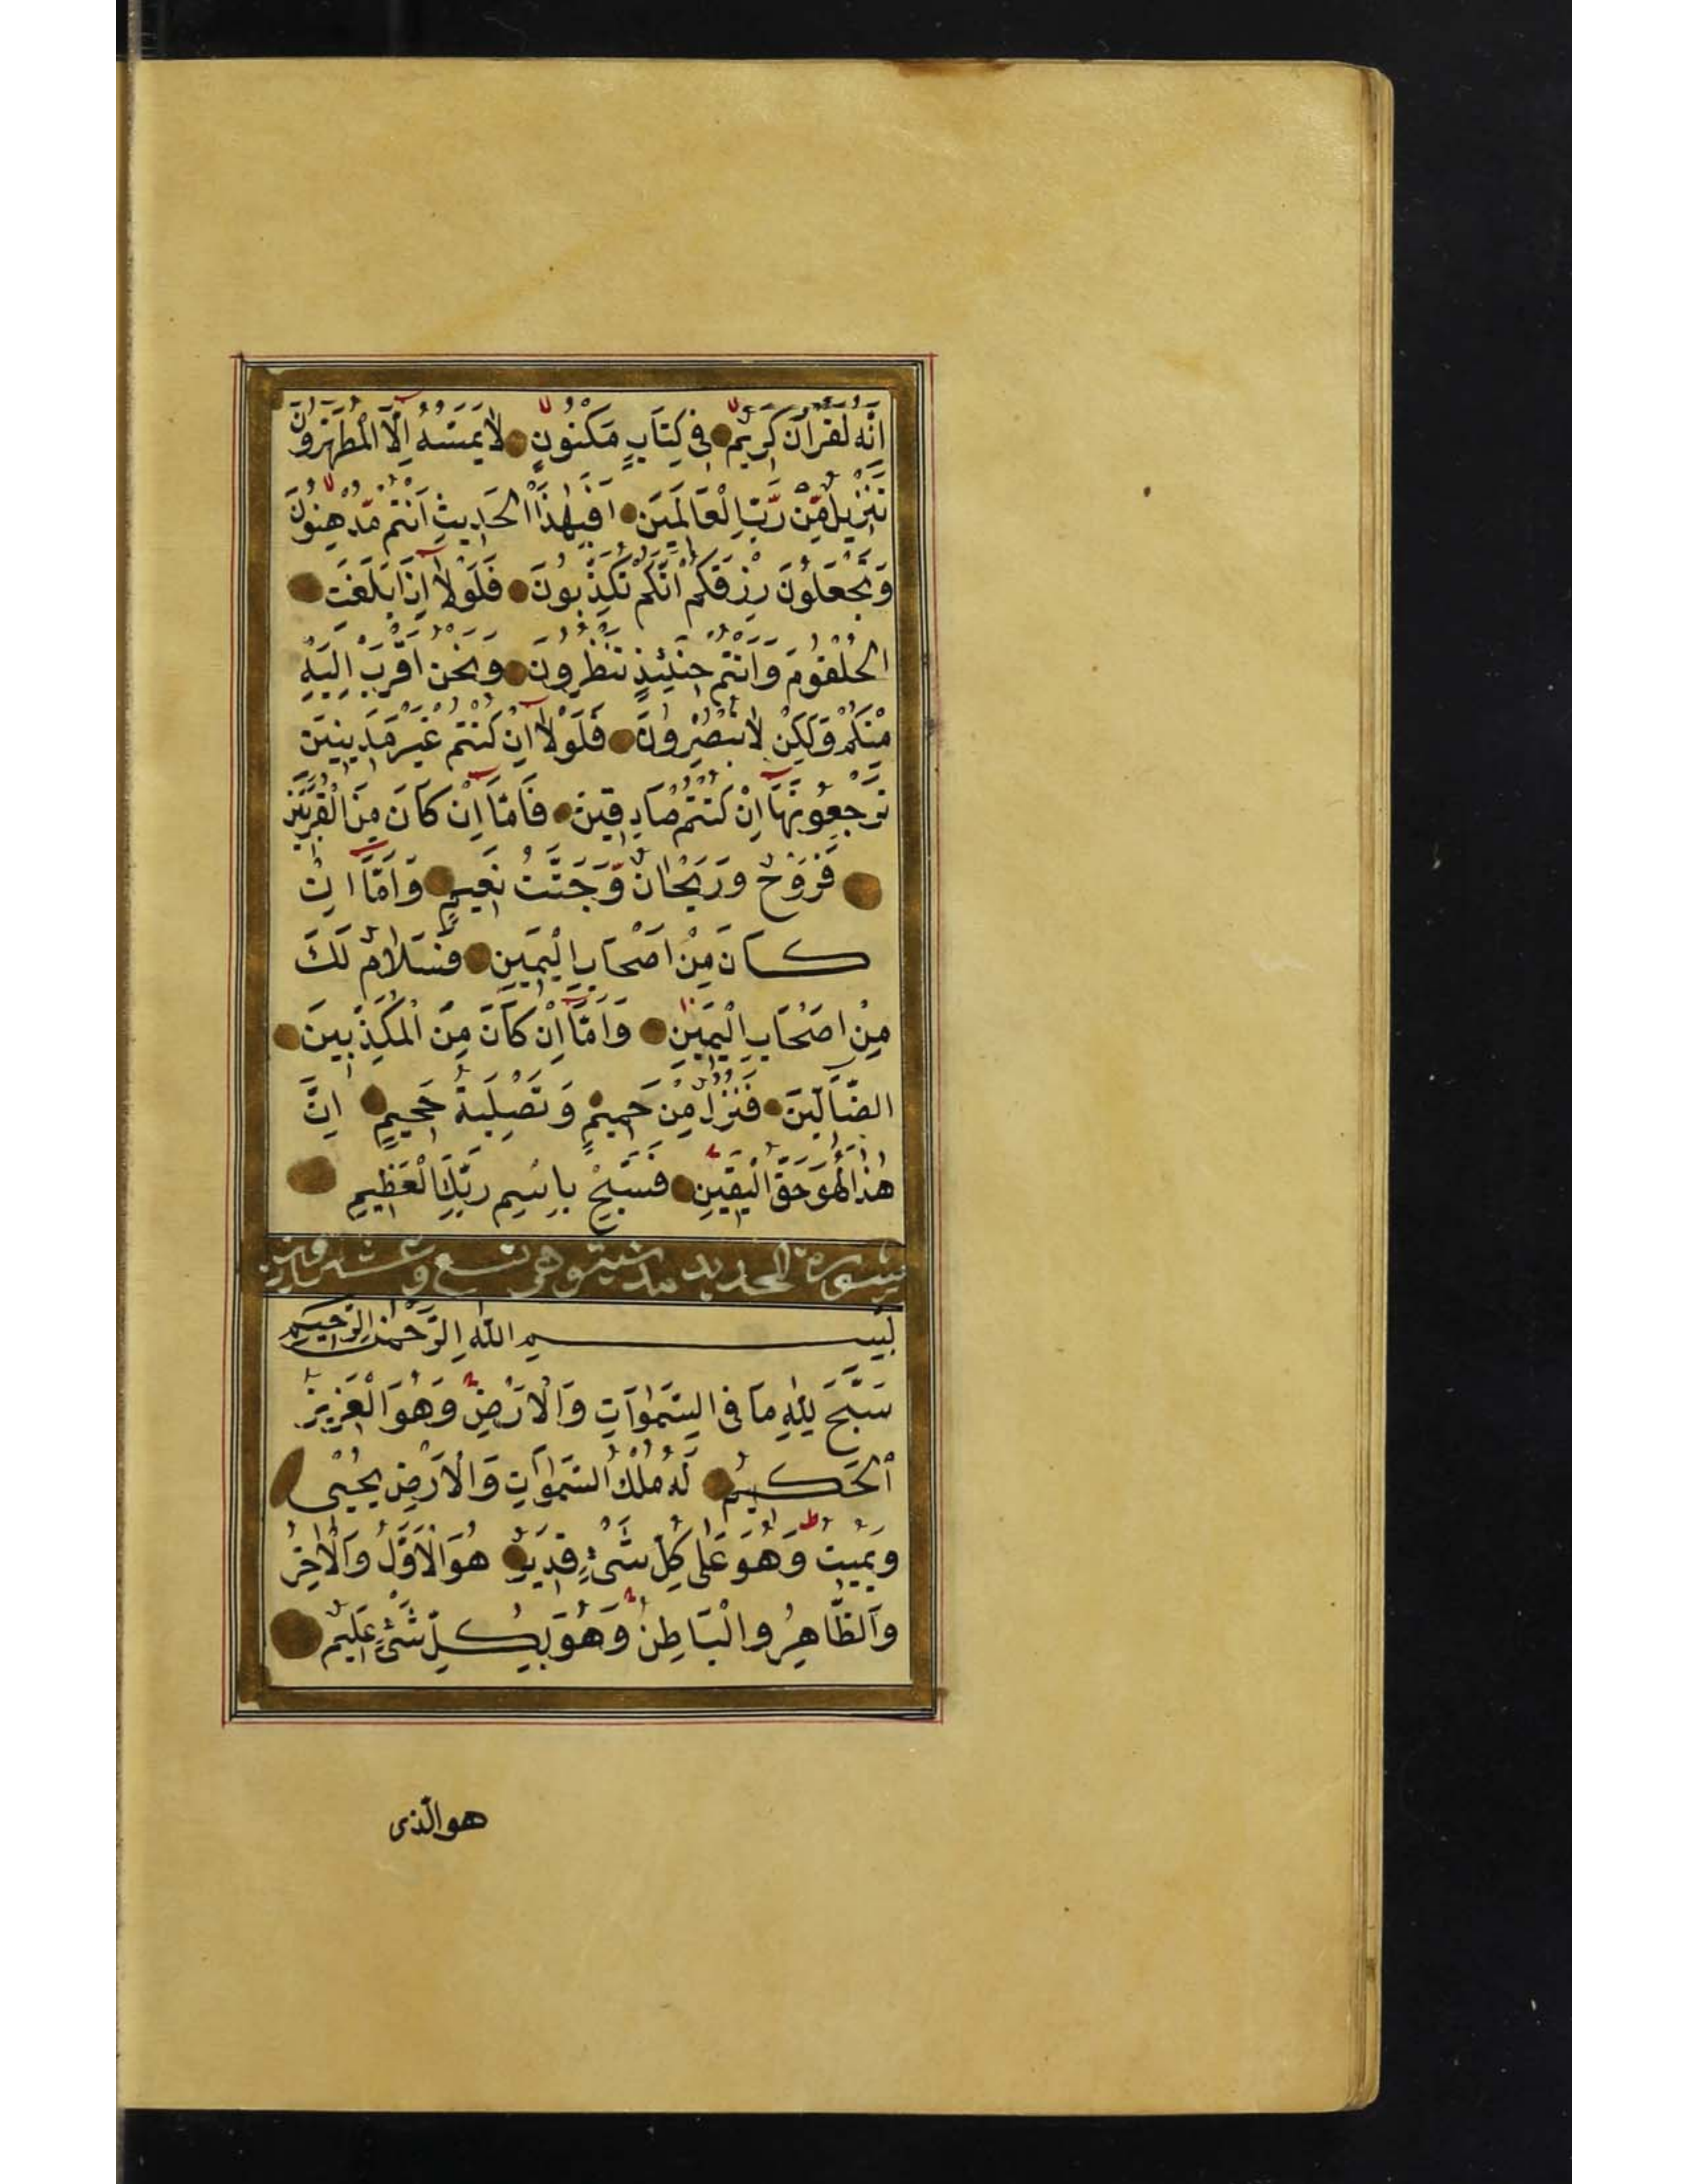 اِنَّهُ لَقُرْاٰنٌ كَرِيْمٌ فِى كِتَابٍ مَكْنُونٍ لَا يَمَسُّهُ اِلَّا الْمُطَهَّرُونَ
تَنْزِيلٌ مِّنْ رَّبِّ الْعَالَمِيَن اَفَبِهٰذَا الْحَدِيثِ اَنْتُمْ مُّدْهِنُونَ
وَتَجْعَلُونَ رِزْقَكُمْ اَنَّكُمْ تُكَذِّبُونَ فَلَوْلَا اِذَا بَلَغَتِ
الْحُلْقُومَ وَاَنْتُمْ حِنَئِذٍ تَنْظُرُونَ وَنَحْنُ اَقْرَبُ اِلَيْهِ
مِنْكُمْ وَلٰكِنْ لَا تُبْصِرُونَ فَلَوْلَا اِنْ كُنْتُمْ غَيْرَ مَدِينِيَن
تَرْجِعُونَهَا اِنْ كُنْتُمْ صَادِقِيَن فَاَمَّا اِنْ كَانَ مِنَ الْمُقَرَّبِيَن
فَرَوْحٌ وَرَيْحَانٌ وَّجَنَّتُ نَعِيمٍ وَاَمَّا اِنْ
كَانَ مِنْ اَصْحَابِ الْيَمِيَنِ فَسَلَامٌ لَكَ
مِنْ اَصْحَابِ الْيَمِيَنِ وَاَمَّا اِنْ كَانَ مِنَ الْمُكَذِّبِينَ
الضَّالِّيَن فَنُزُلٌ مِنْ حَمِيمٍ وَتَصْلِيَةُ جَحِيمٍ اِنَّ
هٰذَا لَهُوَ حَقُّ الْيَقِيَنِ فَسَبِّحْ بِاسْمِ رَبِّكَ الْعَظِيمِ
سورة الحديد مدنيّة وهى تسع وعشرون
بِسْمِ اللّٰهِ الرَّحْمٰنِ الرَّحِيمِ
سَبَّحَ لِلّٰهِ مَا فِى السَّمٰوَاتِ وَالْاَرْضِ وَهُوَ الْعَزِيزُ
الْحَكِيمُ لَهُ مُلْكُ السَّمٰوَاتِ وَالْاَرْضِ يُحْيِى
وَيُمِيتُ وَهُوَ عَلٰى كُلِّ شَىْءٍ قَدِيرٌ هُوَ الْاَوَّلُ وَالْاٰخِرُ
وَالظَّاهِرُ وَالْبَاطِنُ وَهُوَ بِكُلِّ شَىْءٍ عَلِيمٌ
هو الّذى